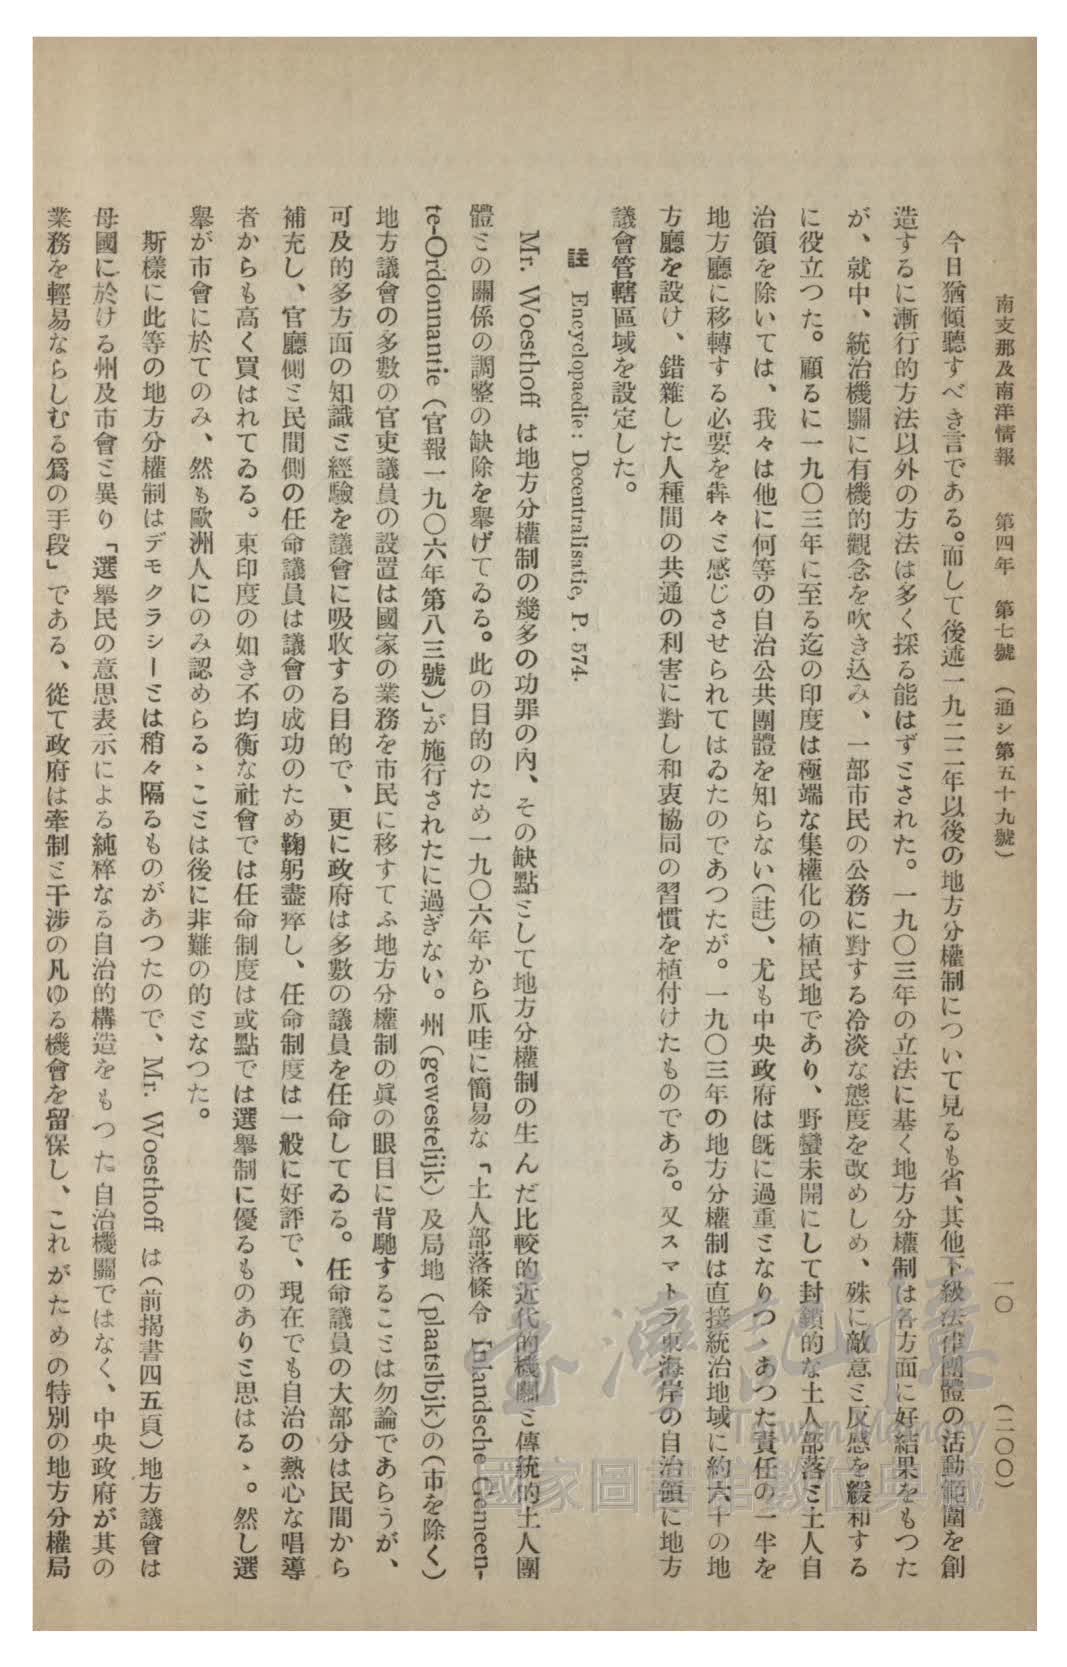 南支那及南洋情報　第四年　第七號　（通シ第五十九號）　一〇　（二〇〇）
今日猶傾聽すべき言である。而して後述一九二二年以後の地方分權制について見るも省、其他下級法律團體の活動範圍を創
造するに漸行的方法以外の方法は多く採る能はずとされた。一九〇三年の立法に基く地方分權制は各方面に好結果をもつた
が、就中、統治機關に有機的觀念を吹き込み、一部市民の公務に對する冷淡な態度を改めしめ、殊に敵意と反感を緩和する
に役立つた。顧るに一九〇三年に至る迄の印度は極端な集權化の植民地であり、野蠻未開にして封鎖的な土人部落と土人自
治領を除いては、我々は他に何等の自治公共團體を知らない（註）、尤も中央政府は既に過重となりつゝあつた責任の一半を
地方廳に移轉する必要を犇々と感じさせられてはゐたのであつたが。一九〇三年の地方分權制は直接統治地域に約六十の地
方廳を設け、錯雜した人種間の共通の利害に對し和衷協同の習慣を植付けたものである。又スマトラ東海岸の自治領に地方
議會管轄區域を設定した。
註　Encyclopaedie: Decentralisatie, P. 574.
Mr. Woesthoff は地方分權制の幾多の功罪の內、その缺點として地方分權制の生んだ比較的近代的機關と傳統的土人團
體との關係の調整の缺除を舉げてゐる。此の目的のため一九〇六年から爪哇に簡易な「土人部落條令 Inlandsche Gemeen-
te-Ordonnantie（官報一九〇六年第八三號）」が施行されたに過ぎない。州（gewestelijk）及局地（plaatslbijk）の（市を除く）
地方議會の多數の官吏議員の設置は國家の業務を市民に移すてふ地方分權制の眞の眼目に背馳することは勿論であらうが、
可及的多方面の知識と經驗を議會に吸收する目的で、更に政府は多數の議員を任命してゐる。任命議員の大部分は民間から
補充し、官廳側と民間側の任命議員は議會の成功のため鞠躬盡瘁し、任命制度は一般に好評で、現在でも自治の熱心な唱導
者からも高く買はれてゐる。東印度の如き不均衡な社會では任命制度は或點では選舉制に優るものありと思はるゝ。然し選
舉が市會に於てのみ、然も歐洲人にのみ認めらるゝことは後に非難の的となつた。
斯樣に此等の地方分權制はデモクラシーとは稍々隔るものがあつたので、Mr. Woesthoff は（前揭書四五頁）地方議會は
母國に於ける州及市會と異り「選舉民の意思表示による純粹なる自治的構造をもつた自治機關ではなく、中央政府が其の
業務を輕易ならしむる爲の手段」である、從て政府は牽制と干涉の凡ゆる機會を留保し、これがための特別の地方分權局
臺灣記憶
Taiwan Memory
國家圖書館數位典藏